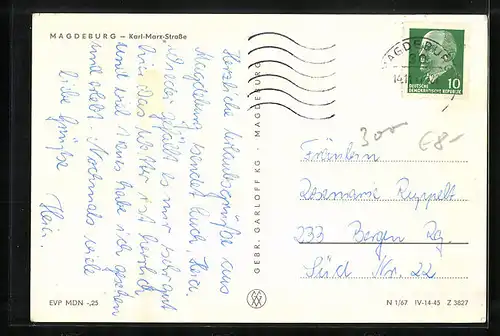 MAGDEBURG – Karl-Marx-Straße
Herzliche Urlaubsgrüße aus
Magdeburg sendet Euch Heia.
gefällt es mir sehr gut
Das Wetter ist herrlich
und viel habe ich gesehen
und erlebt. Nochmals viele
liebe Grüße
GEBR. GARLOFF KG · MAGDEBURG
EVP MDN -,25
MAGDEBURG
10
DEUTSCHE
DEMOKRATISCHE REPUBLIK
300
€8-
Fräulein
Rosemarie Ruppelt
233 Bergen Rg.
Süd Nr. 22
N 1/67 IV-14-45 Z 3827